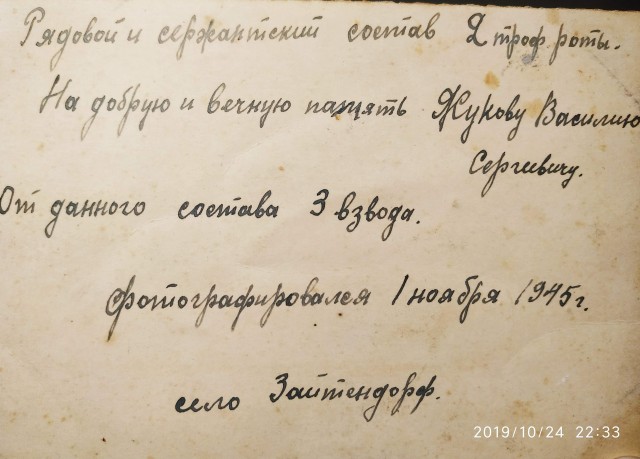 Рядовой и сержантский состав 2 троф. роты.
На добрую и вечную память Жукову Василию
Сергеевичу.
От данного состава 3 взвода.
Фотографировался 1 ноября 1945 г.
село Зайтендорф.
2019/10/24 22:33